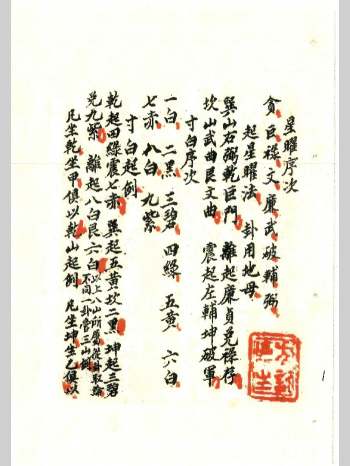 星曜序次
貪巨祿文廉武破輔弼
起星曜法 卦用地母
巽山右弼乾巨門 離起廉貞兌祿存
坎山武曲艮文曲 震起左輔坤破軍
寸白序次
一白 二黑 三碧 四綠 五黃 六白
七赤 八白 九紫
寸白起例
乾起四綠震七赤 巽起五黃坎二黑坤起三碧
兌九紫 離起八白艮六白以上八山所屬從卦取除
不同一卦管三山例
凡坐乾坐甲俱以乾山起例 凡坐坤坐乙俱以